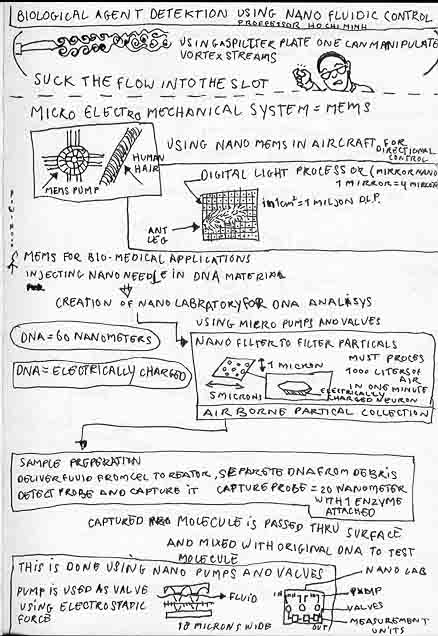 BIOLOGICAL AGENT DETEKTION USING NANO FLUIDIC CONTROL
PROFESSOR HO CHI MINH
USING A SPLITER PLATE ONE CAN MANIPULATE
VORTEX STREAMS
SUCK THE FLOW INTO THE SLOT
MICRO ELECTRO MECHANICAL SYSTEM = MEMS
USING NANO MEMS IN AIRCRAFT FOR
DIRECTIONAL
CONTROL
HUMAN
HAIR
MEMS PUMP
DIGITAL LIGHT PROCESS OR (MIRROR NANO
1 MIRROR = 4 MICRON
in 1cm² = 1 MILJON D.L.P.
ANT
LEG
MEMS FOR BIO-MEDICAL APPLICATIONS
INJECTING NANO NEEDLE IN DNA MATERIAL
CREATION OF NANO LABRATORY FOR DNA ANALISYS
USING MICRO PUMPS AND VALVES
DNA = 60 NANOMETERS
DNA = ELECTRICALLY CHARGED
NANO FILTER TO FILTER PARTICALS
1 MICRON
5 MICRONS
MUST PROCES
1000 LITERS OF
AIR
IN ONE MINUTE
ELECTRICALLY
CHARGED NEURON
AIR BORNE PARTICAL COLLECTION
SAMPLE PREPERATION
DELIVER FLUID FROM CEL TO REATOR, SEPERETE DNA FROM DEBRIS
DETECT PROBE AND CAPTURE IT CAPTURE PROBE = 20 NANOMETER
WITH 1 ENZYME
ATTACHED
CAPTURED MOLECULE IS PASSED THRU SURFACE
AND MIXED WITH ORIGINAL DNA TO TEST
MOLECULE
THIS IS DONE USING NANO PUMPS AND VALVES
PUMP IS USED AS VALVE
USING ELECTROSTATIC
FORCE
FLUID
18 MICRONS WIDE
NANO LAB
PUMP
VALVES
MEASUREMENT
UNITS
IN
OUT